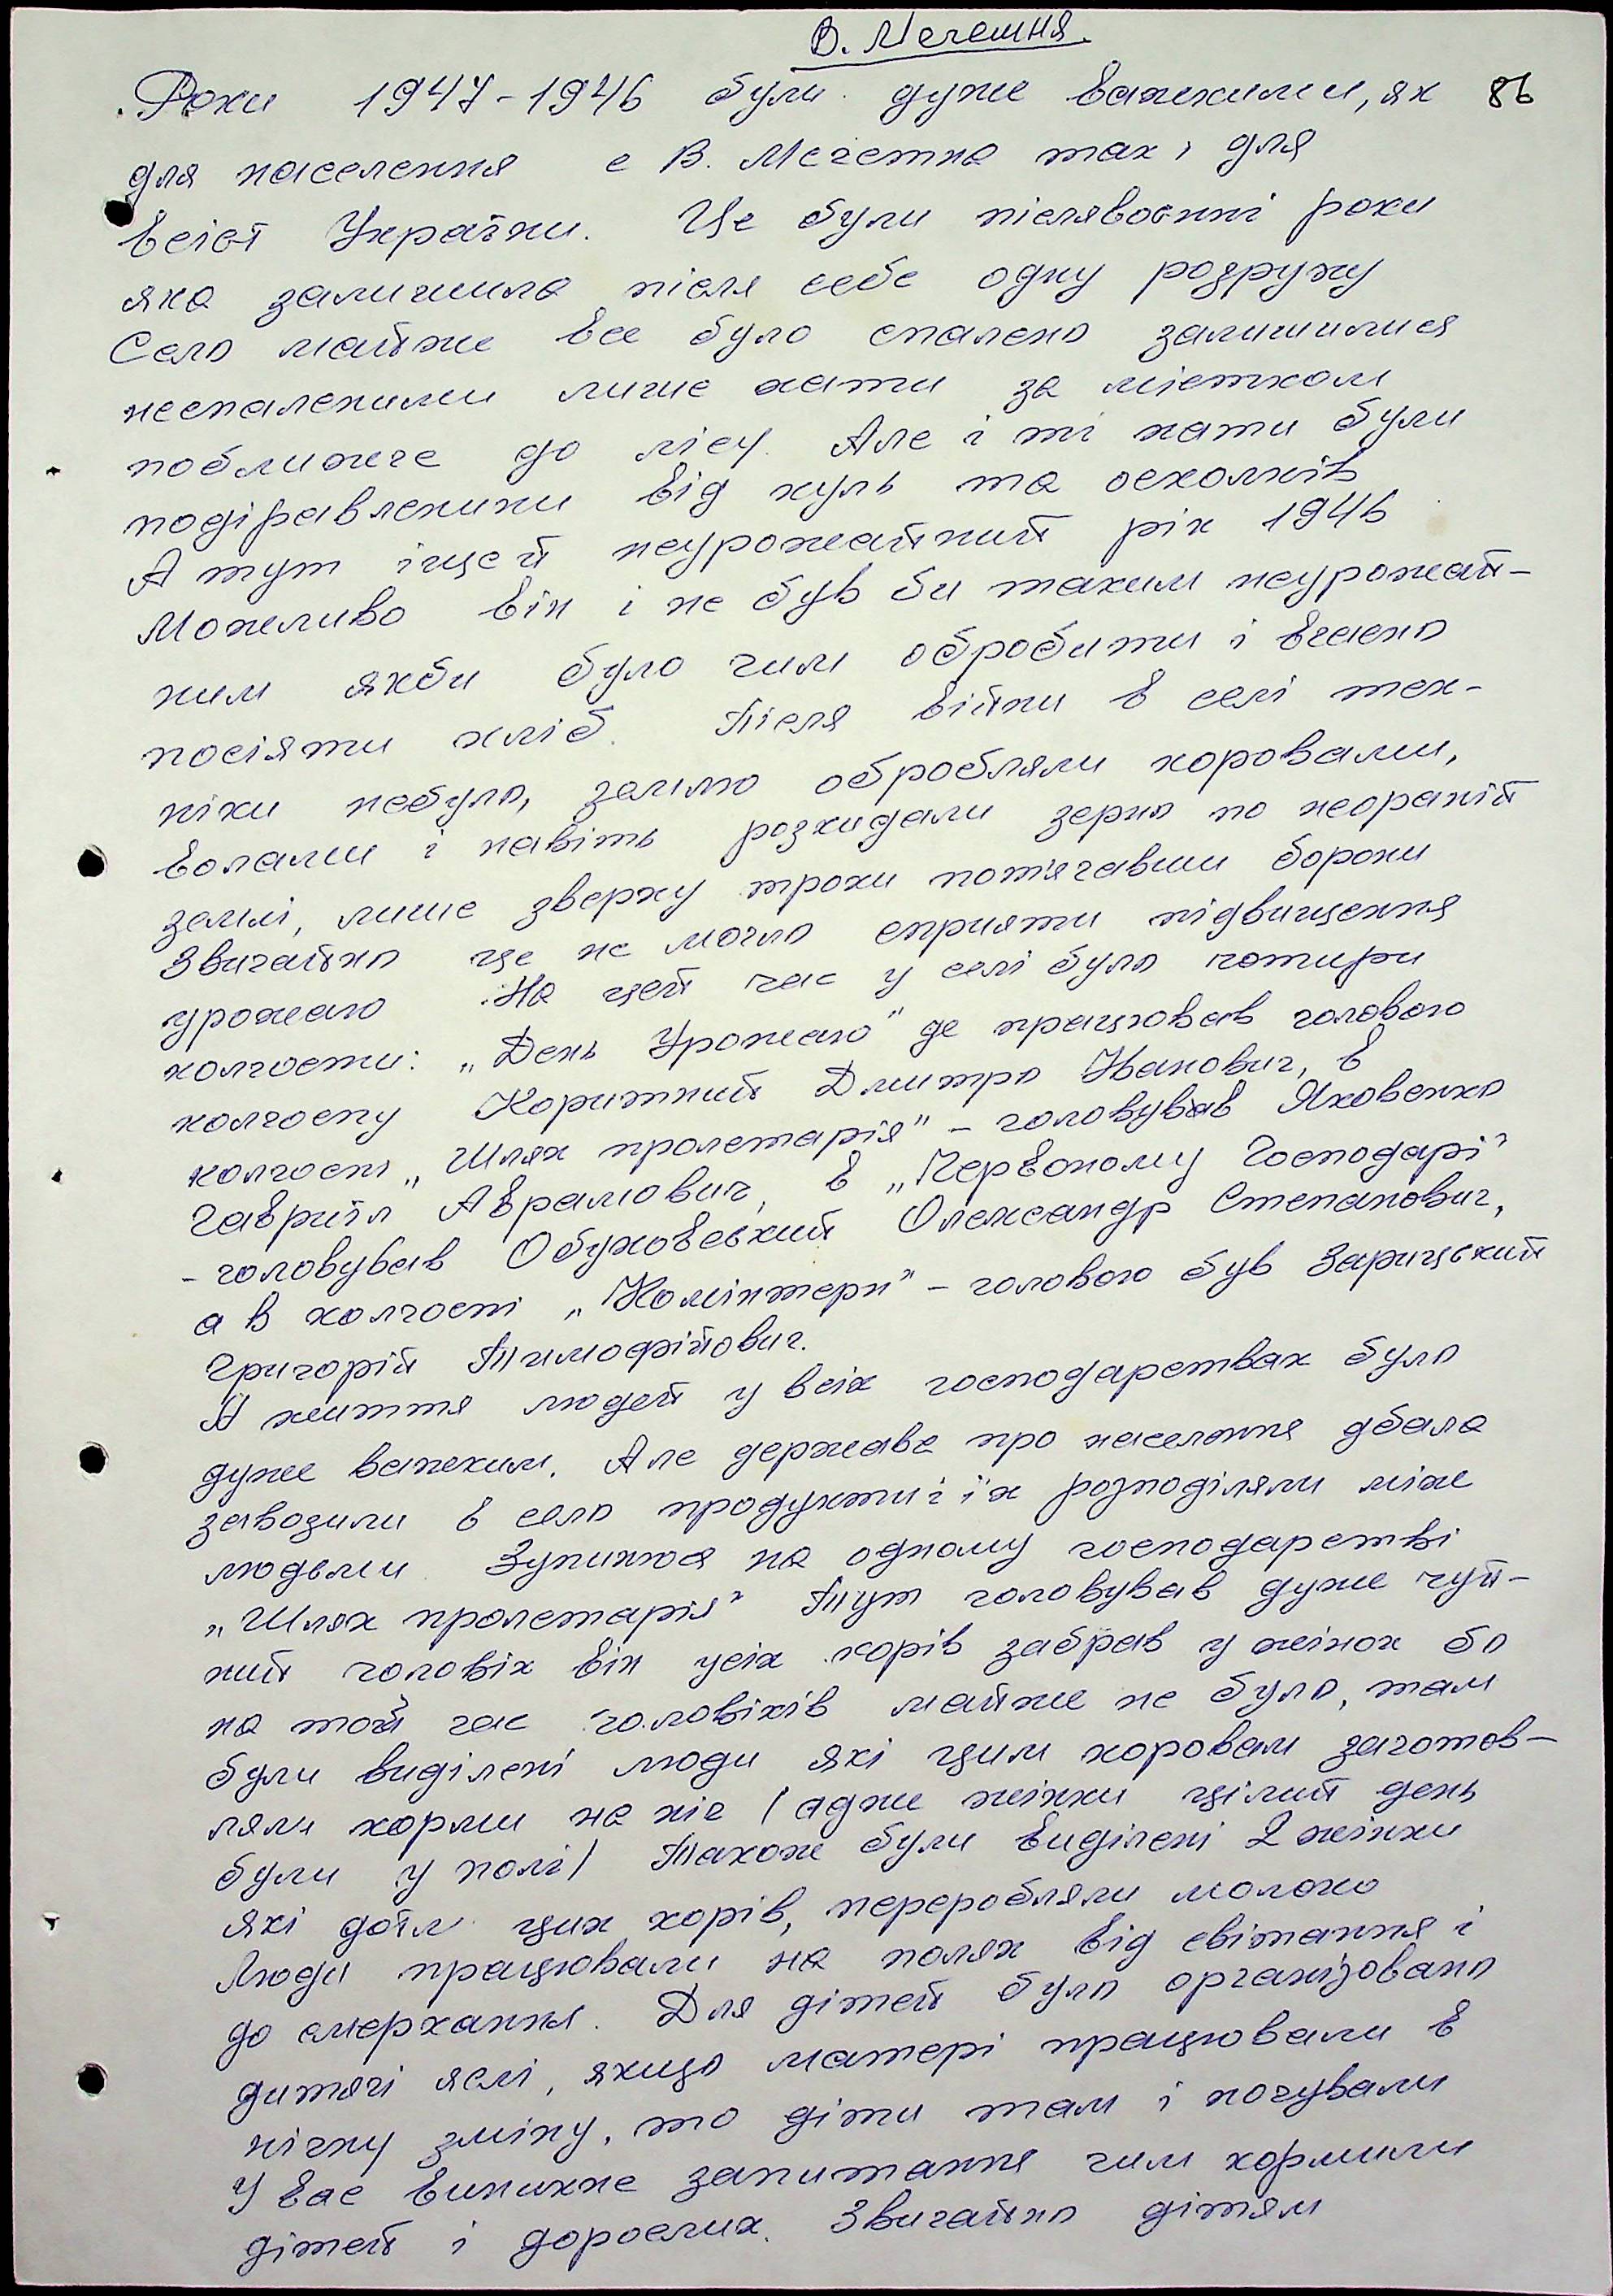 В. Мечетня.
86
Роки 1947-1946 були дуже важкими, як
для населення с В. Мечетна так і для
всієї України. Це були післявоєнні роки
яка залишила після себе одну розруху
Село майже все було спалено залишилися
неспаленими лише хати за містком
поближче до лісу. Але і ті хати були
подірявленими від куль та осколків
А тут іщей неурожайний рік 1946
Можливо він і не був би таким неурожай-
ним якби було чим обробити і вчасно
посіяти хліб. Після війни в селі тех-
ніки небуло, землю обробляли коровами,
волами і навіть розкидали зерно по неораній
землі, лише зверху трохи потягавши борони
Звичайно це не могло сприяти підвищення
урожаю. На цей час у селі було чотири
колгоспи: „День Урожаю" де працював головою
колгоспу Коритний Дмитро Іванович, в
колгоспі „Шлях пролетарія" - головував Яковенко
Гавриїл Аврамович, в „Червоному Господарі"
- головував Обуховський Олександр Степанович,
а в колгоспі „Комінтерн" - головою був Зарицький
Григорій Тимофійович.
А життя людей у всіх господарствах було
дуже важким. Але держава про населення дбала
завозили в село продукти і їх розподіляли між
людьми. Зупинюся на одному господарстві
„Шлях пролетарія" Тут головував дуже чуй-
ний чоловік він усіх корів забрав у жінок бо
на той час чоловіків майже не було, там
були виділені люди які цим коровам заготов-
ляли корми на ніч (адже жінки цілий день
були у полі) Також були виділені 2 жінки
які доїли цих корів, переробляли молоко
Люди працювали на полях від світання і
до смеркання. Для дітей було організовано
дитячі яслі, якщо матері працювали в
нічну зміну, то діти там і ночували
У вас виникне запитання чим кормили
дітей і дорослих. Звичайно дітям